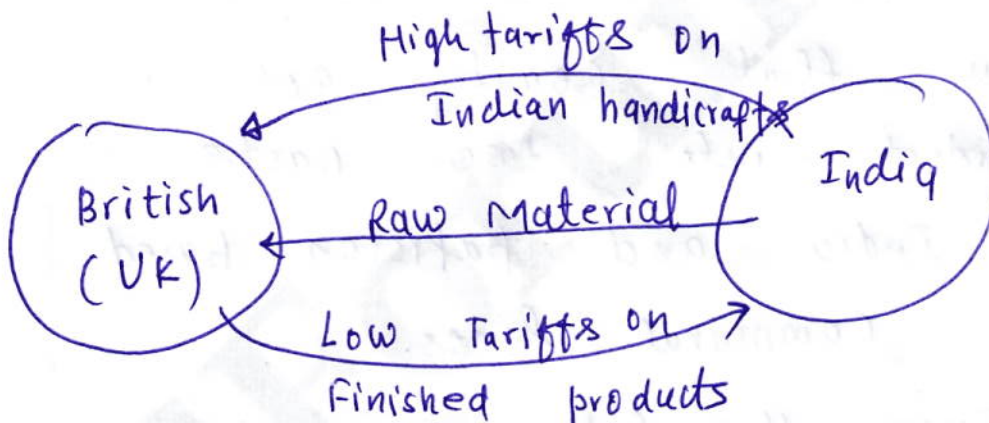 High tariffs on
Indian handicrafts
India
British
(UK)
Raw Material
Low Tariffs on
Finished products